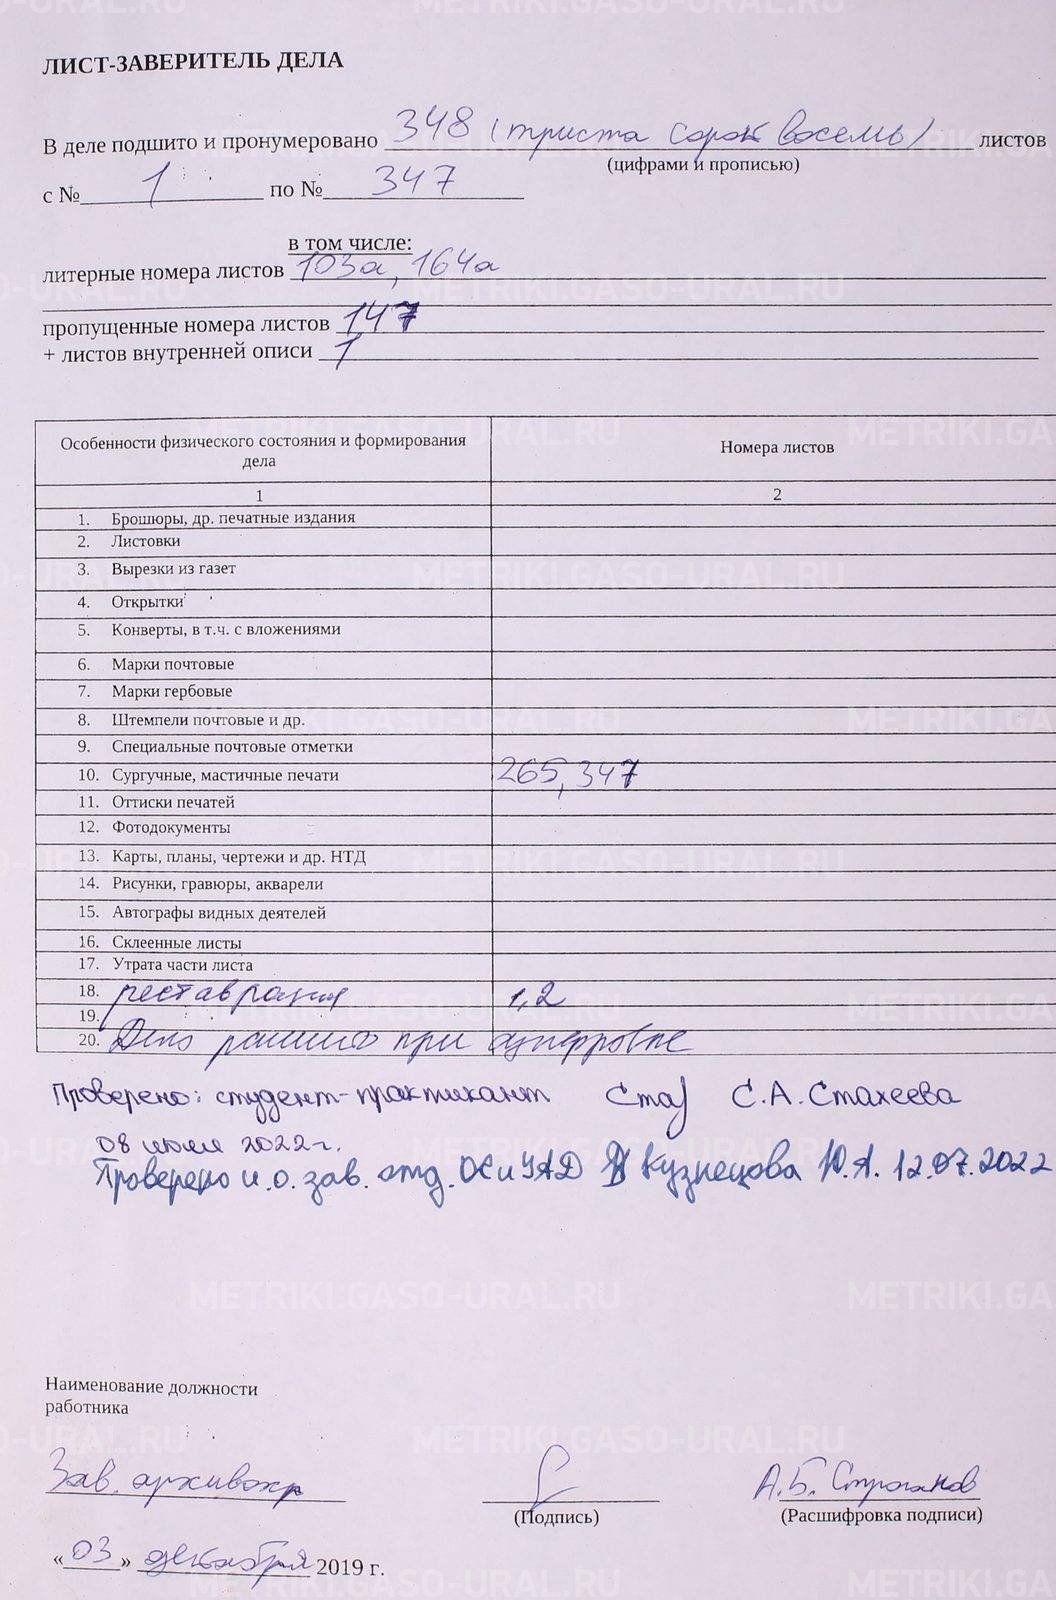 ЛИСТ-ЗАВЕРИТЕЛЬ ДЕЛА
В деле подшито и пронумеровано 348 (триста сорок восемь) листов
(цифрами и прописью)
с № 1 по № 347
в том числе:
литерные номера листов 103а, 164а
пропущенные номера листов 147
+ листов внутренней описи 1
Особенности физического состояния и формирования дела Номера листов
1 2
1. Брошюры, др. печатные издания
2. Листовки
3. Вырезки из газет
4. Открытки
5. Конверты, в т.ч. с вложениями
6. Марки почтовые
7. Марки гербовые
8. Штемпели почтовые и др.
9. Специальные почтовые отметки
10. Сургучные, мастичные печати 265, 347
11. Оттиски печатей
12. Фотодокументы
13. Карты, планы, чертежи и др. НТД
14. Рисунки, гравюры, акварели
15. Автографы видных деятелей
16. Склеенные листы
17. Утрата части листа
18. реставрация 1, 2
19.
20. Дело расшито при оцифровке
Проверено: студент-практикант С.А. Стахеева
08 июля 2022 г.
Проверено и.о. зав. отд. ОСиУАД Кузнецова Ю.А. 12.07.2022
Наименование должности
работника
Зав. архивохр А.Б. Строганов
(Подпись) (Расшифровка подписи)
«03» декабря 2019 г.
METRIKI.GASO-URAL.RU